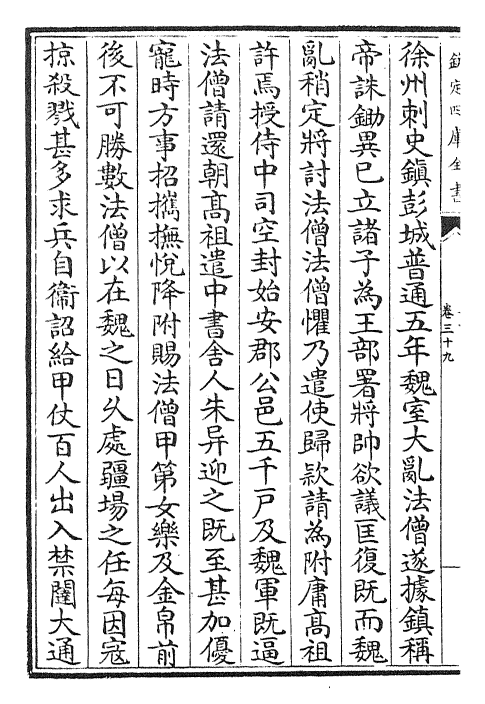 徐州刺史鎮彭城普通五年魏室大亂法僧遂據鎮稱
帝誅鋤異已立諸子為王部署將帥欲議匡復既而魏
亂稍定將討法僧法僧懼乃遣使歸欵請為附庸髙祖
許焉授侍中司空封始安郡公邑五千戶及魏軍既逼
法僧請還朝髙祖遣中書舍人朱异迎之既至甚加優
寵時方事招攜撫悅降附賜法僧甲第女樂及金帛前
後不可勝數法僧以在魏之日乆處疆場之任每因寇
掠殺戮甚多求兵自衞詔給甲仗百人出入禁闥大通
欽定四庫全書
卷三十九